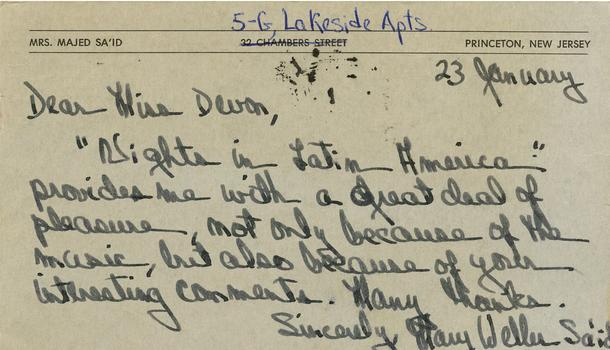 5-G, Lakeside Apts.
MRS. MAJED SA'ID 32 CHAMBERS STREET PRINCETON, NEW JERSEY
23 January
Dear Miss Devon,
"Nights in Latin America"
provides me with a great deal of
pleasure, not only because of the
music, but also because of your
interesting comments. Many thanks.
Sincerely, Mary Weller Sa'id